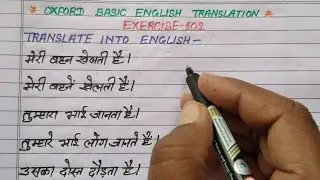 * OXFORD BASIC ENGLISH TRANSLATION *
EXERCISE-102
TRANSLATE INTO ENGLISH-
मेरी बहन खेलती है।
मेरी बहनें खेलती हैं।
तुम्हारा भाई जानता है।
तुम्हारे भाई लोग जानते हैं।
उसका दोस्त दौड़ता है।